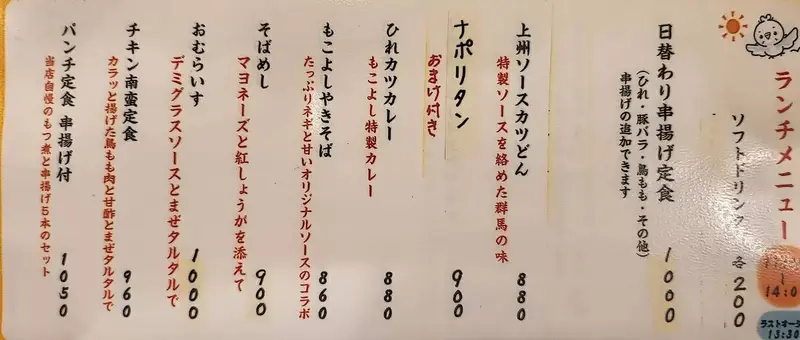 ランチメニュー
14:0
ラストオーダ
13:30
ソフトドリンク 各200
日替わり串揚げ定食 1000
(ひれ・豚バラ・鳥もも・その他)
串揚げの追加できます
上州ソースカツどん 880
特製ソースを絡めた群馬の味
ナポリタン 900
おまけ付き
ひれカツカレー 880
もこよし特製カレー
もこよしやきそば 860
たっぷりネギと甘いオリジナルソースのコラボ
そばめし 900
マヨネーズと紅しょうがを添えて
おむらいす 1000
デミグラスソースとまぜタルタルで
チキン南蛮定食 960
カラッと揚げた鳥もも肉と甘酢とまぜタルタルで
パンチ定食 串揚げ付 1050
当店自慢のもつ煮と串揚げ5本のセット